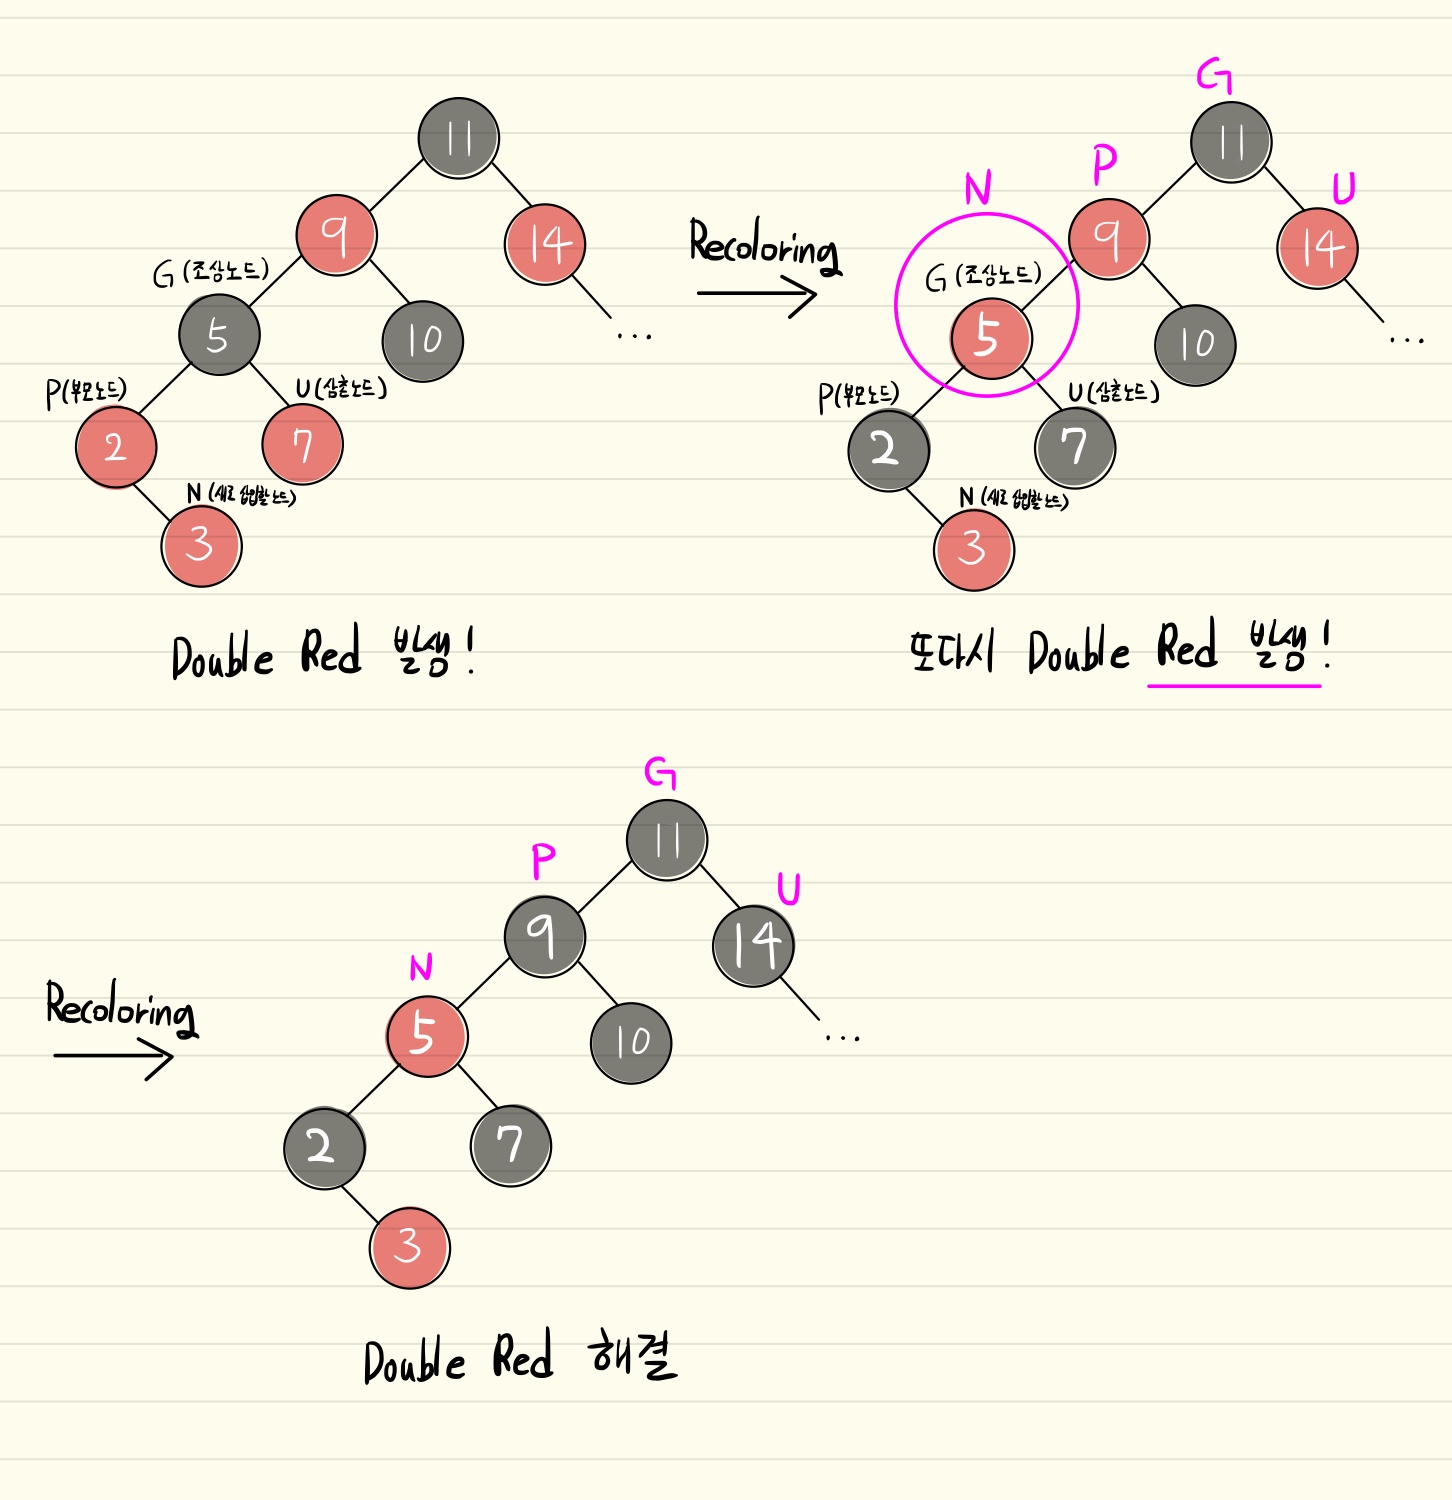 11
9
14
G (조상노드)
5
10
...
P(부모노드)
U (삼촌노드)
2
7
N (새로 삽입할 노드)
3
Double Red 발생!
Recoloring
G
11
P
N
U
9
14
G (조상노드)
5
10
...
P(부모노드)
U (삼촌노드)
2
7
N (새로 삽입할 노드)
3
또다시 Double Red 발생!
Recoloring
G
11
P
U
9
14
N
5
10
...
2
7
3
Double Red 해결